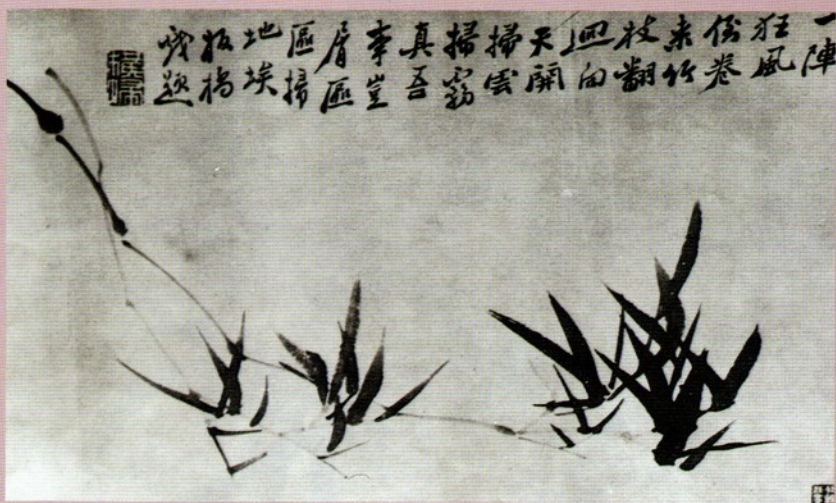 一陣
狂風
倒卷
来竹
枝翻
迴向
天開
掃雲
掃霧
真吾
事豈
屑區
區掃
地埃
板橋
戲題